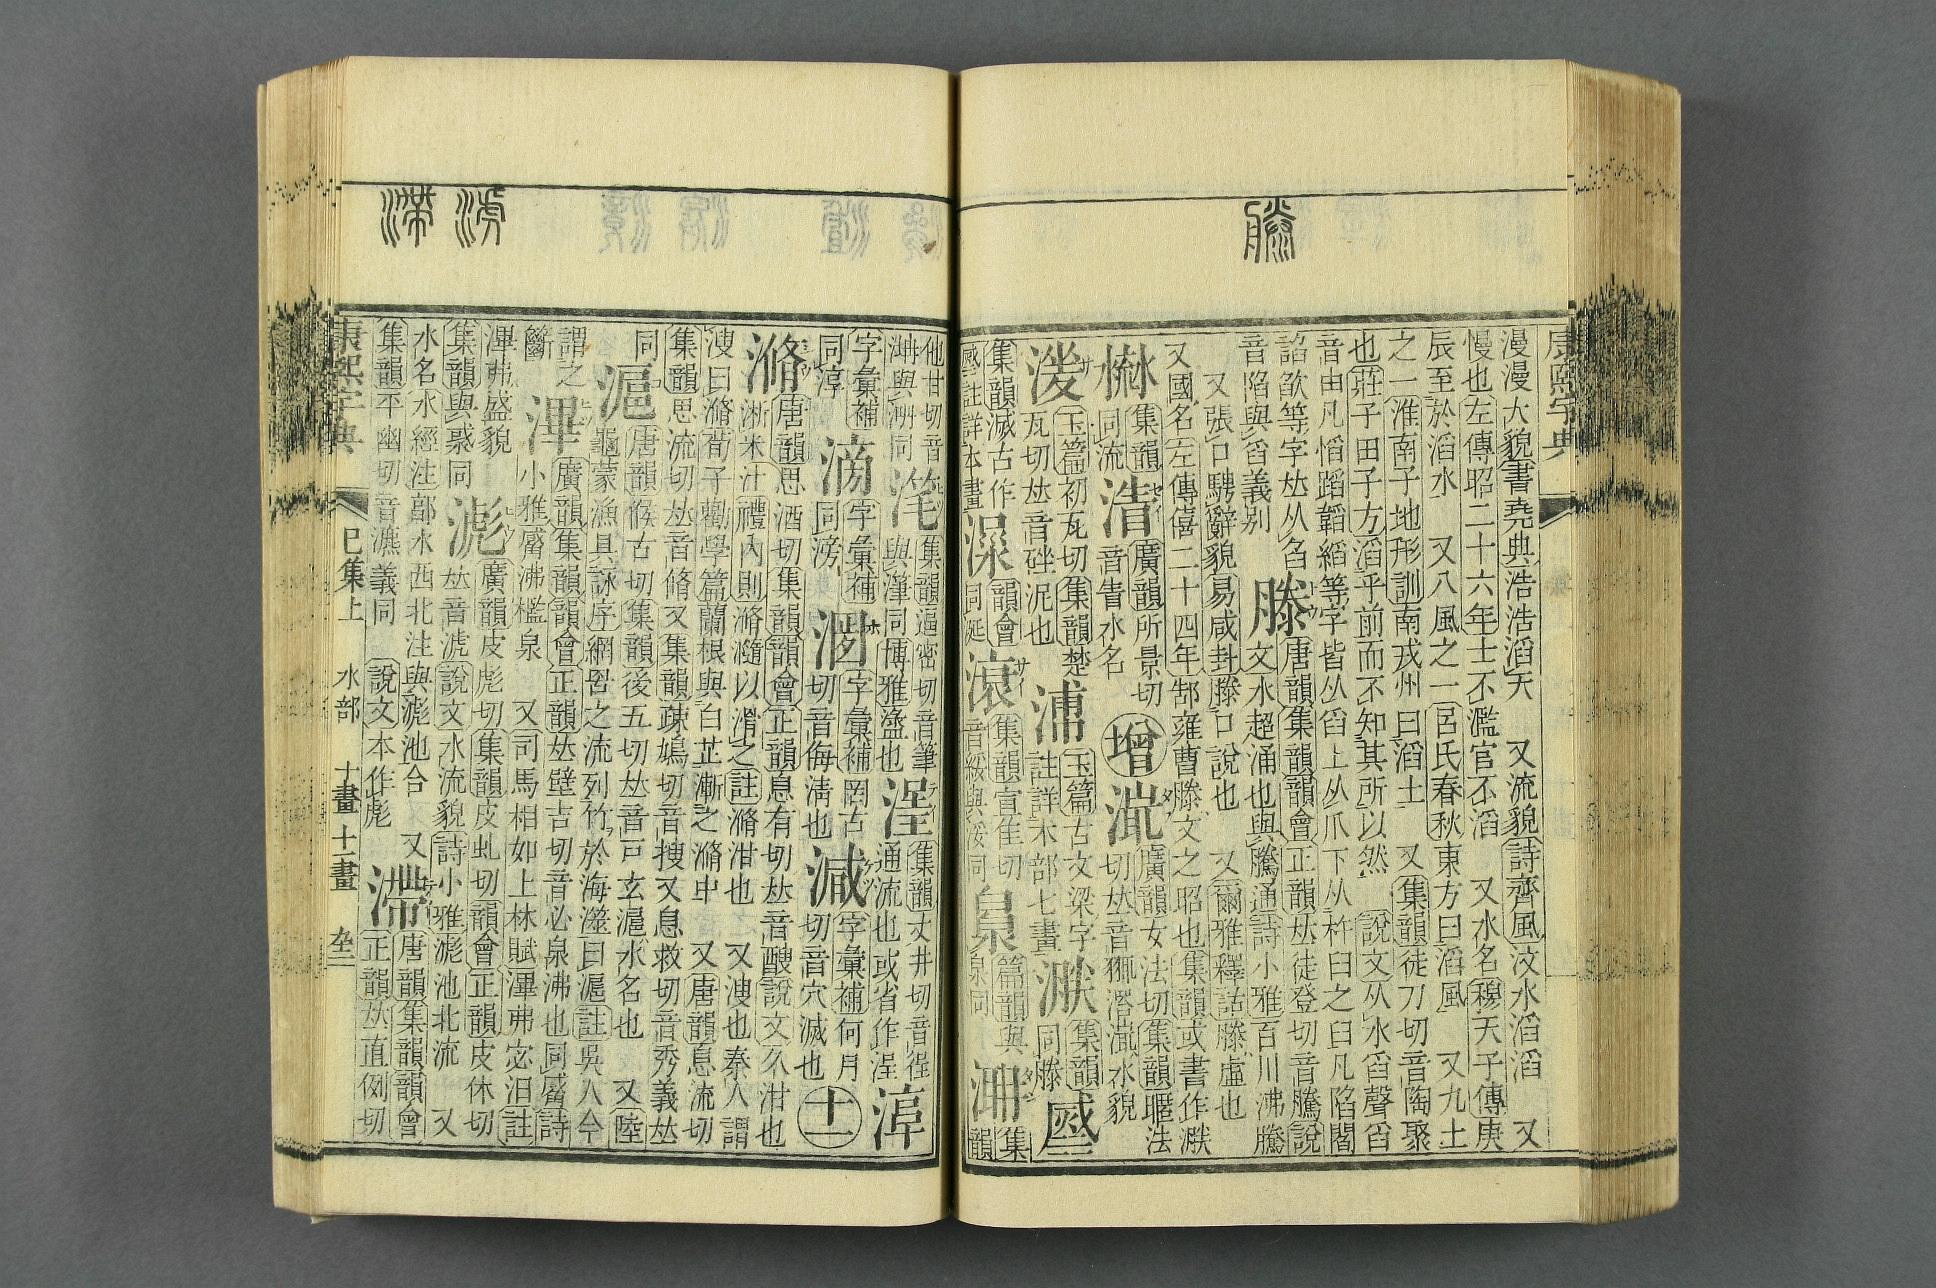 滕
康熙字典
漫漫大貌書堯典浩浩滔天 又流貌詩齊風汶水滔滔 又
慢也左傳昭二十六年士不濫官不滔 又水名穆天子傳庚
辰至於滔水 又八風之一呂氏春秋東方曰滔風 又九土
之一淮南子地形訓南戎州曰滔土 又集韻徒刀切音陶聚
也莊子田子方滔乎前而不知其所以然 說文从水舀聲舀
音由凡慆蹈韜縚等字皆从舀上从爪下从杵臼之臼凡陷閻
諂欿等字𠀤从臽
音陷與舀義別
滕
唐韻集韻韻會正韻𠀤徒登切音騰說
文水超涌也與騰通詩小雅百川沸騰
又張口騁辭貌易咸卦滕口說也 又爾雅釋詁滕虛也
又國名左傳僖二十四年郜雍曹滕文之昭也集韻或書作
集韻
同流
渻
廣韻所景切
音眚水名
增
廣韻女法切集韻昵法
切𠀤音 水貌
玉篇初瓦切集韻楚
瓦切𠀤音 泥也
玉篇古文梁字
註詳木部七畫
集韻
同滕
集韻滅古作
註詳本畫
韻會
同涎
滾
集韻宣隹切
音綏與浽同
篇韻與
泉同
集
韻
滹 滯
他甘切音
與 同
滗
集韻逼密切音筆
與潷同博雅盝也
浧
集韻丈井切音徎
通流也或省作浧
字彙補
同淳
字彙補
同滂
溷
字彙補罔古
切音侮清也
減
字彙補何月
切音穴滅也
十一
滫
唐韻思酒切集韻韻會正韻息有切𠀤音醙說文久泔也
淅米汁禮內則滫瀡以滑之註滫泔也 又溲也秦人謂
溲曰滫荀子勸學篇蘭根與白芷漸之滫中 又唐韻息流切
集韻思流切𠀤音脩又集韻疎鳩切音搜又息救切音秀義𠀤
同
滬
唐韻候古切集韻後五切𠀤音戸玄滬水名也 又陸
龜蒙漁具詠序網罟之流列竹於海澨曰滬註吳人今
謂之
籪
滭
廣韻集韻韻會正韻𠀤壁吉切音必泉沸也同觱詩
小雅觱沸檻泉 又司馬相如上林賦滭弗宓汩註
滭弗盛貌
集韻與惑同
滮
廣韻皮彪切集韻皮虬切韻會正韻皮休切
𠀤音淲說文水流貌詩小雅滮池北流 又
水名水經注鄗水西北注與滮池合 又
集韻平幽切音瀌義同 說文本作淲
滯
唐韻集韻韻會
正韻𠀤直例切
康熙字典 巳集上 水部 十畫 十一畫